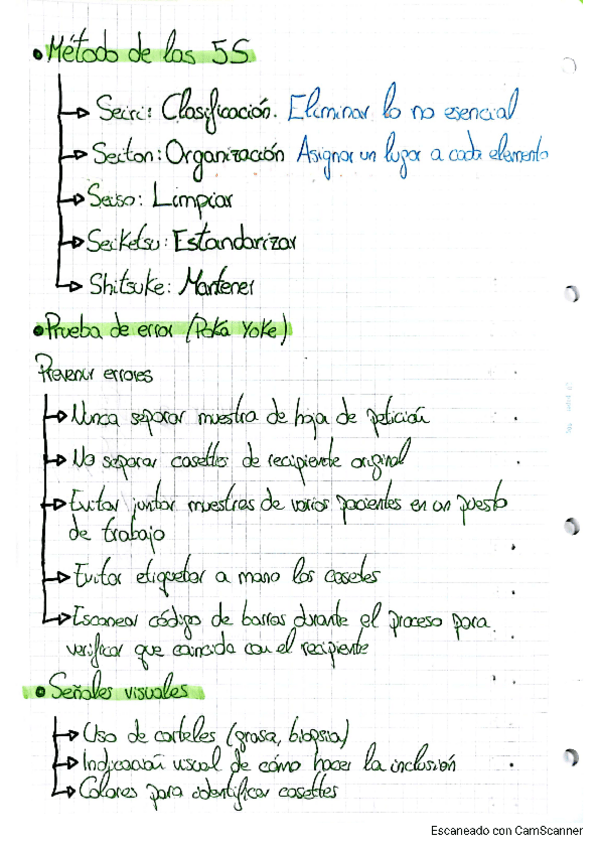 • Método de las 5S
Seiri: Clasificación. Eliminar lo no esencial
Seiton: Organización Asignar un lugar a cada elemento
Seiso: Limpiar
Seiketsu: Estandarizar
Shitsuke: Mantener
• Prueba de error (Poka Yoke)
Prevenir errores
Nunca separar muestra de hoja de petición
No separar casettes de recipiente original
Evitar juntar muestras de varios pacientes en un puesto
de trabajo
Evitar etiquetar a mano los casetes
Escanear código de barras durante el proceso para
verificar que coincida con el recipiente
• Señales visuales
Uso de carteles (grasa, biopsia)
Indicación visual de cómo hacer la inclusión
Colores para identificar casettes
Escaneado con CamScanner